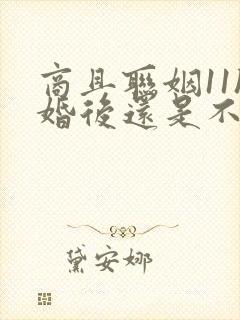 商且聯姻11
婚後還是不
黛安娜